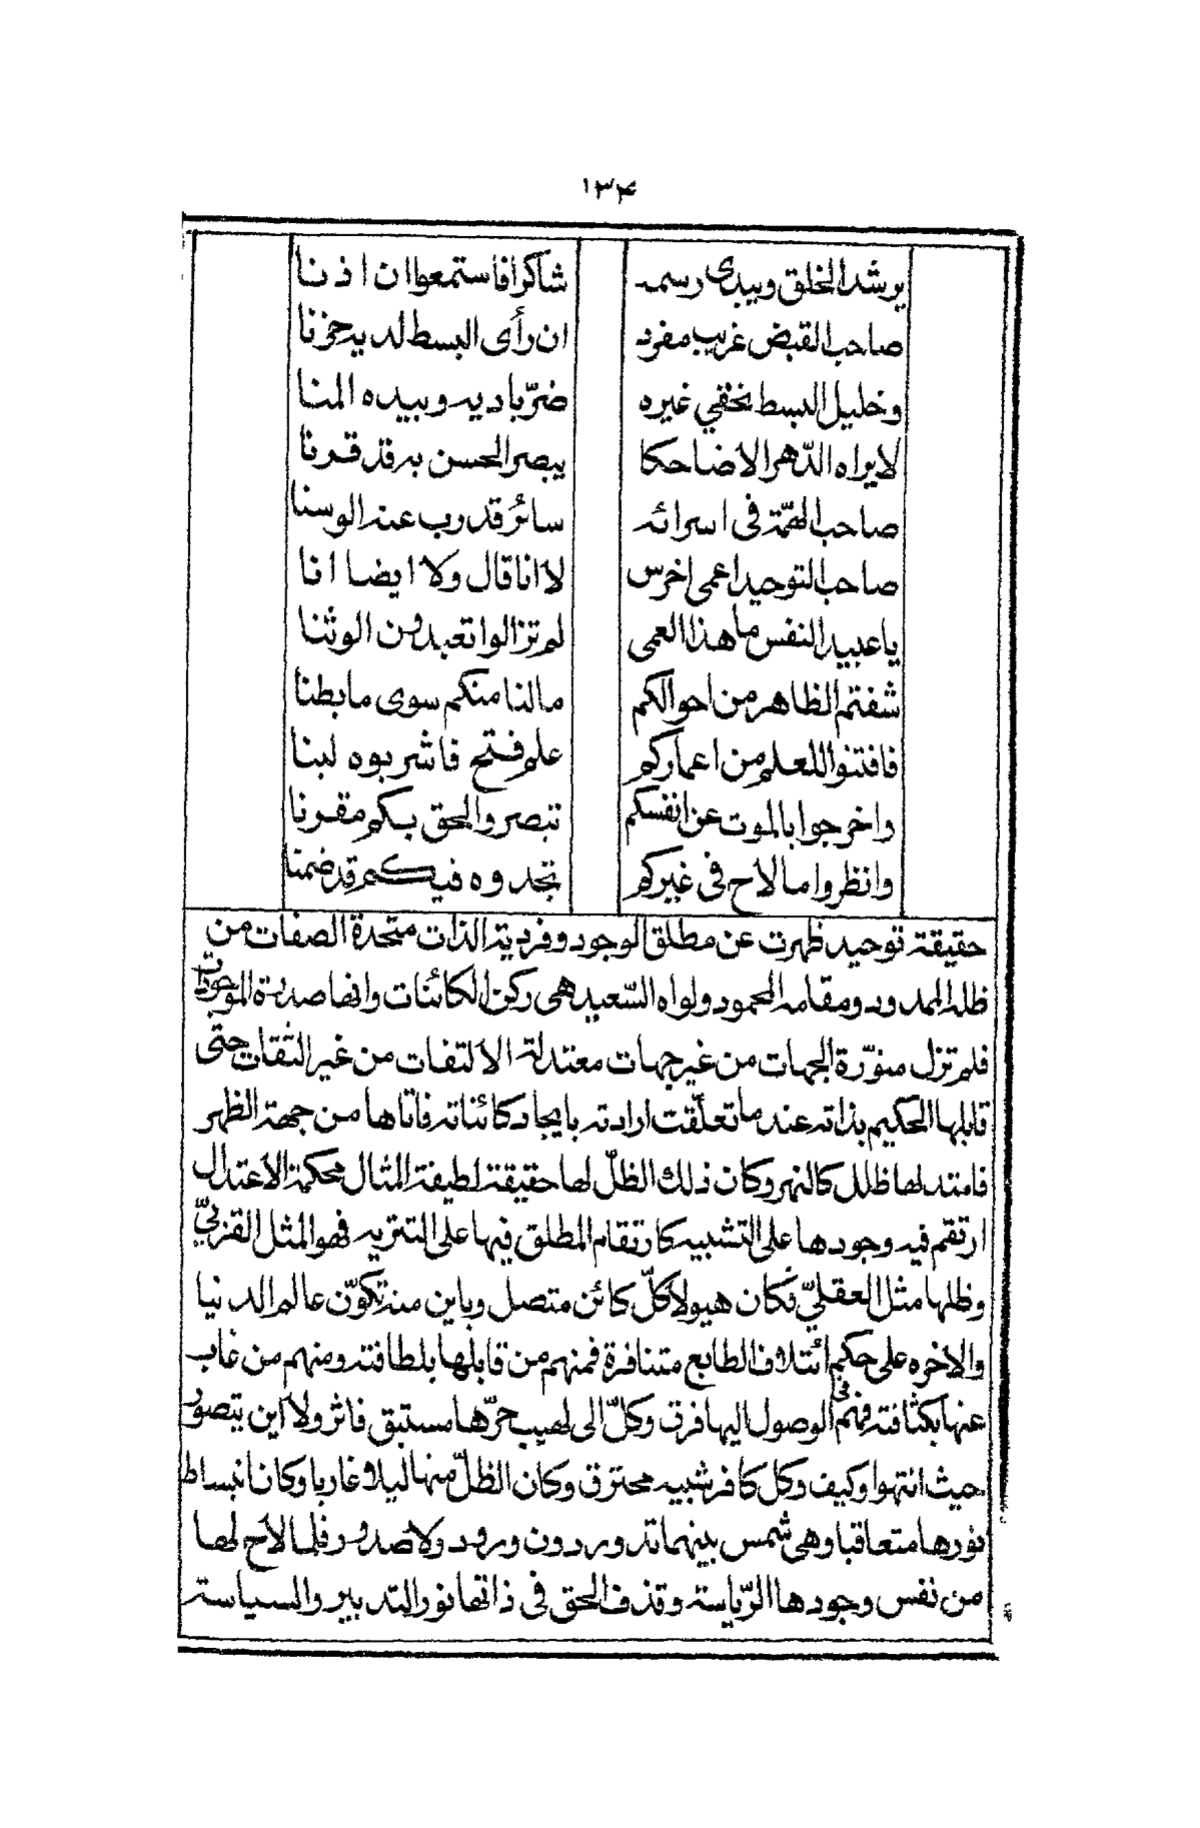 ١٣۴
يرشد الخلق ويبدى رسمه شاكرا فاستمعوا ان اذنا
صاحب القبض غريب مفرد ان رأى البسط لديه حزنا
وخليل البسط يخفي غيره ضرّ باديه ويبيده المنا
لا يراه الدّهر الا ضاحكا يبصر الحسن به قد قرنا
صاحب الهمّة فى اسرائه سائر قد رب عنه الوسنا
صاحب التوحيد اعمى اخرس لا انا قال ولا ايضا انا
يا عبيد النفس ما هذا العمى لم تزالوا تعبدون الوثنا
شفتم الظاهر من احوالكم مالنا منكم سوى ما بطنا
فافتنوا للعلم من اعماركم علم فتح فاشربوه لبنا
واخرجوا بالموت عن انفسكم تبصروا الحق بكم مقرنا
وانظروا ما لاح فى غيركم تجدوه فيكم قد ضمنا
حقيقة توحيد ظهرت عن مطلق الوجود وفردية الذات متحدة الصفات من
ظله الممدود ومقامه المحمود ولواه السّعيد هى ركن الكائنات وانها صدرة الموجودات
فلم تزل منوّرة الجهات من غير جهات معتدلة الالتفات من غير التفات حتى
قابلها الحكيم بذاته عند ما تعلّقت ارادته بايجاد كائناته فاتاها من جهة الظهر
فامتد لها ظلل كالنهر وكان ذلك الظلّ لها حقيقة لطيفة المثال محكمة الاعتدال
ارتقم فيه وجودها على التشبيه كارتقام المطلق فيها على التنزيه فهو المثل القزبيّ
وظلها مثل العقليّ فكان هيولا كلّ كائن متصل وباين منه تكوّن عالم الدنيا
والاخره على حكم ائتلاف الطابع متنافرة فمنهم من قابلها بلطافته ومنهم من غاب
عنها بكثافته فهم فى الوصول اليها فرق وكلّ الى لهيب حرّها مستبق فاثر ولا اين يتصوّر
حيث انتهوا وكيف وكل كافر شبيه محترق وكان الظلّ منها ليلا غاربا وكان انبساط
نورها متعاقبا وهى شمس بينهما تدور دون ورود ولا صدور فلما لاح لها
من نفس وجودها الرّياسة وقذف الحق فى ذاتها نور التدبير والسياسة